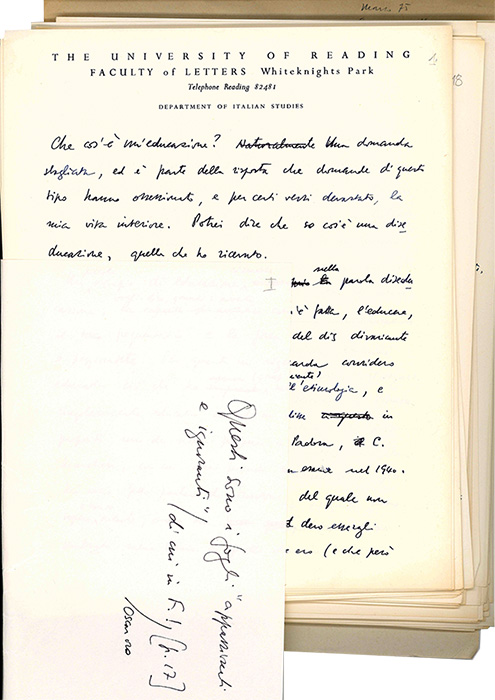 Marzo 75
THE UNIVERSITY OF READING
FACULTY of LETTERS Whiteknights Park
Telephone Reading 82481
DEPARTMENT OF ITALIAN STUDIES
1
18
Che cos'è un'educazione? Naturalmente Una domanda
sbagliata, ed è parte della risposta che domande di questo
tipo hanno ossessionato, e per certi versi devastato, la
mia vita interiore. Potrei dire che so cos'è una dise
ducazione, quella che ho ricevuto.
nella
parola diseduc
è fatta, l'educava,
del dis divaricante
considero
l'etimologia, e
in
Padova, C.
nel 1940.
del quale non
devo essergli
ero (e che però
I
Questi sono i fogli "appassionati
e ignoranti"
(di cui in F.! [p. 17]